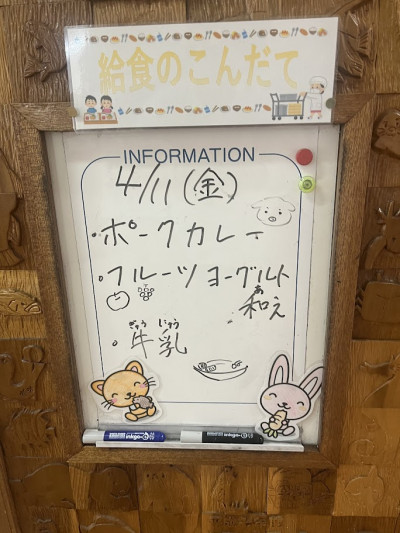 給食のこんだて
INFORMATION
4/11(金)
・ポークカレー
・フルーツヨーグルト
あ
和え
ぎゅう にゅう
・牛乳